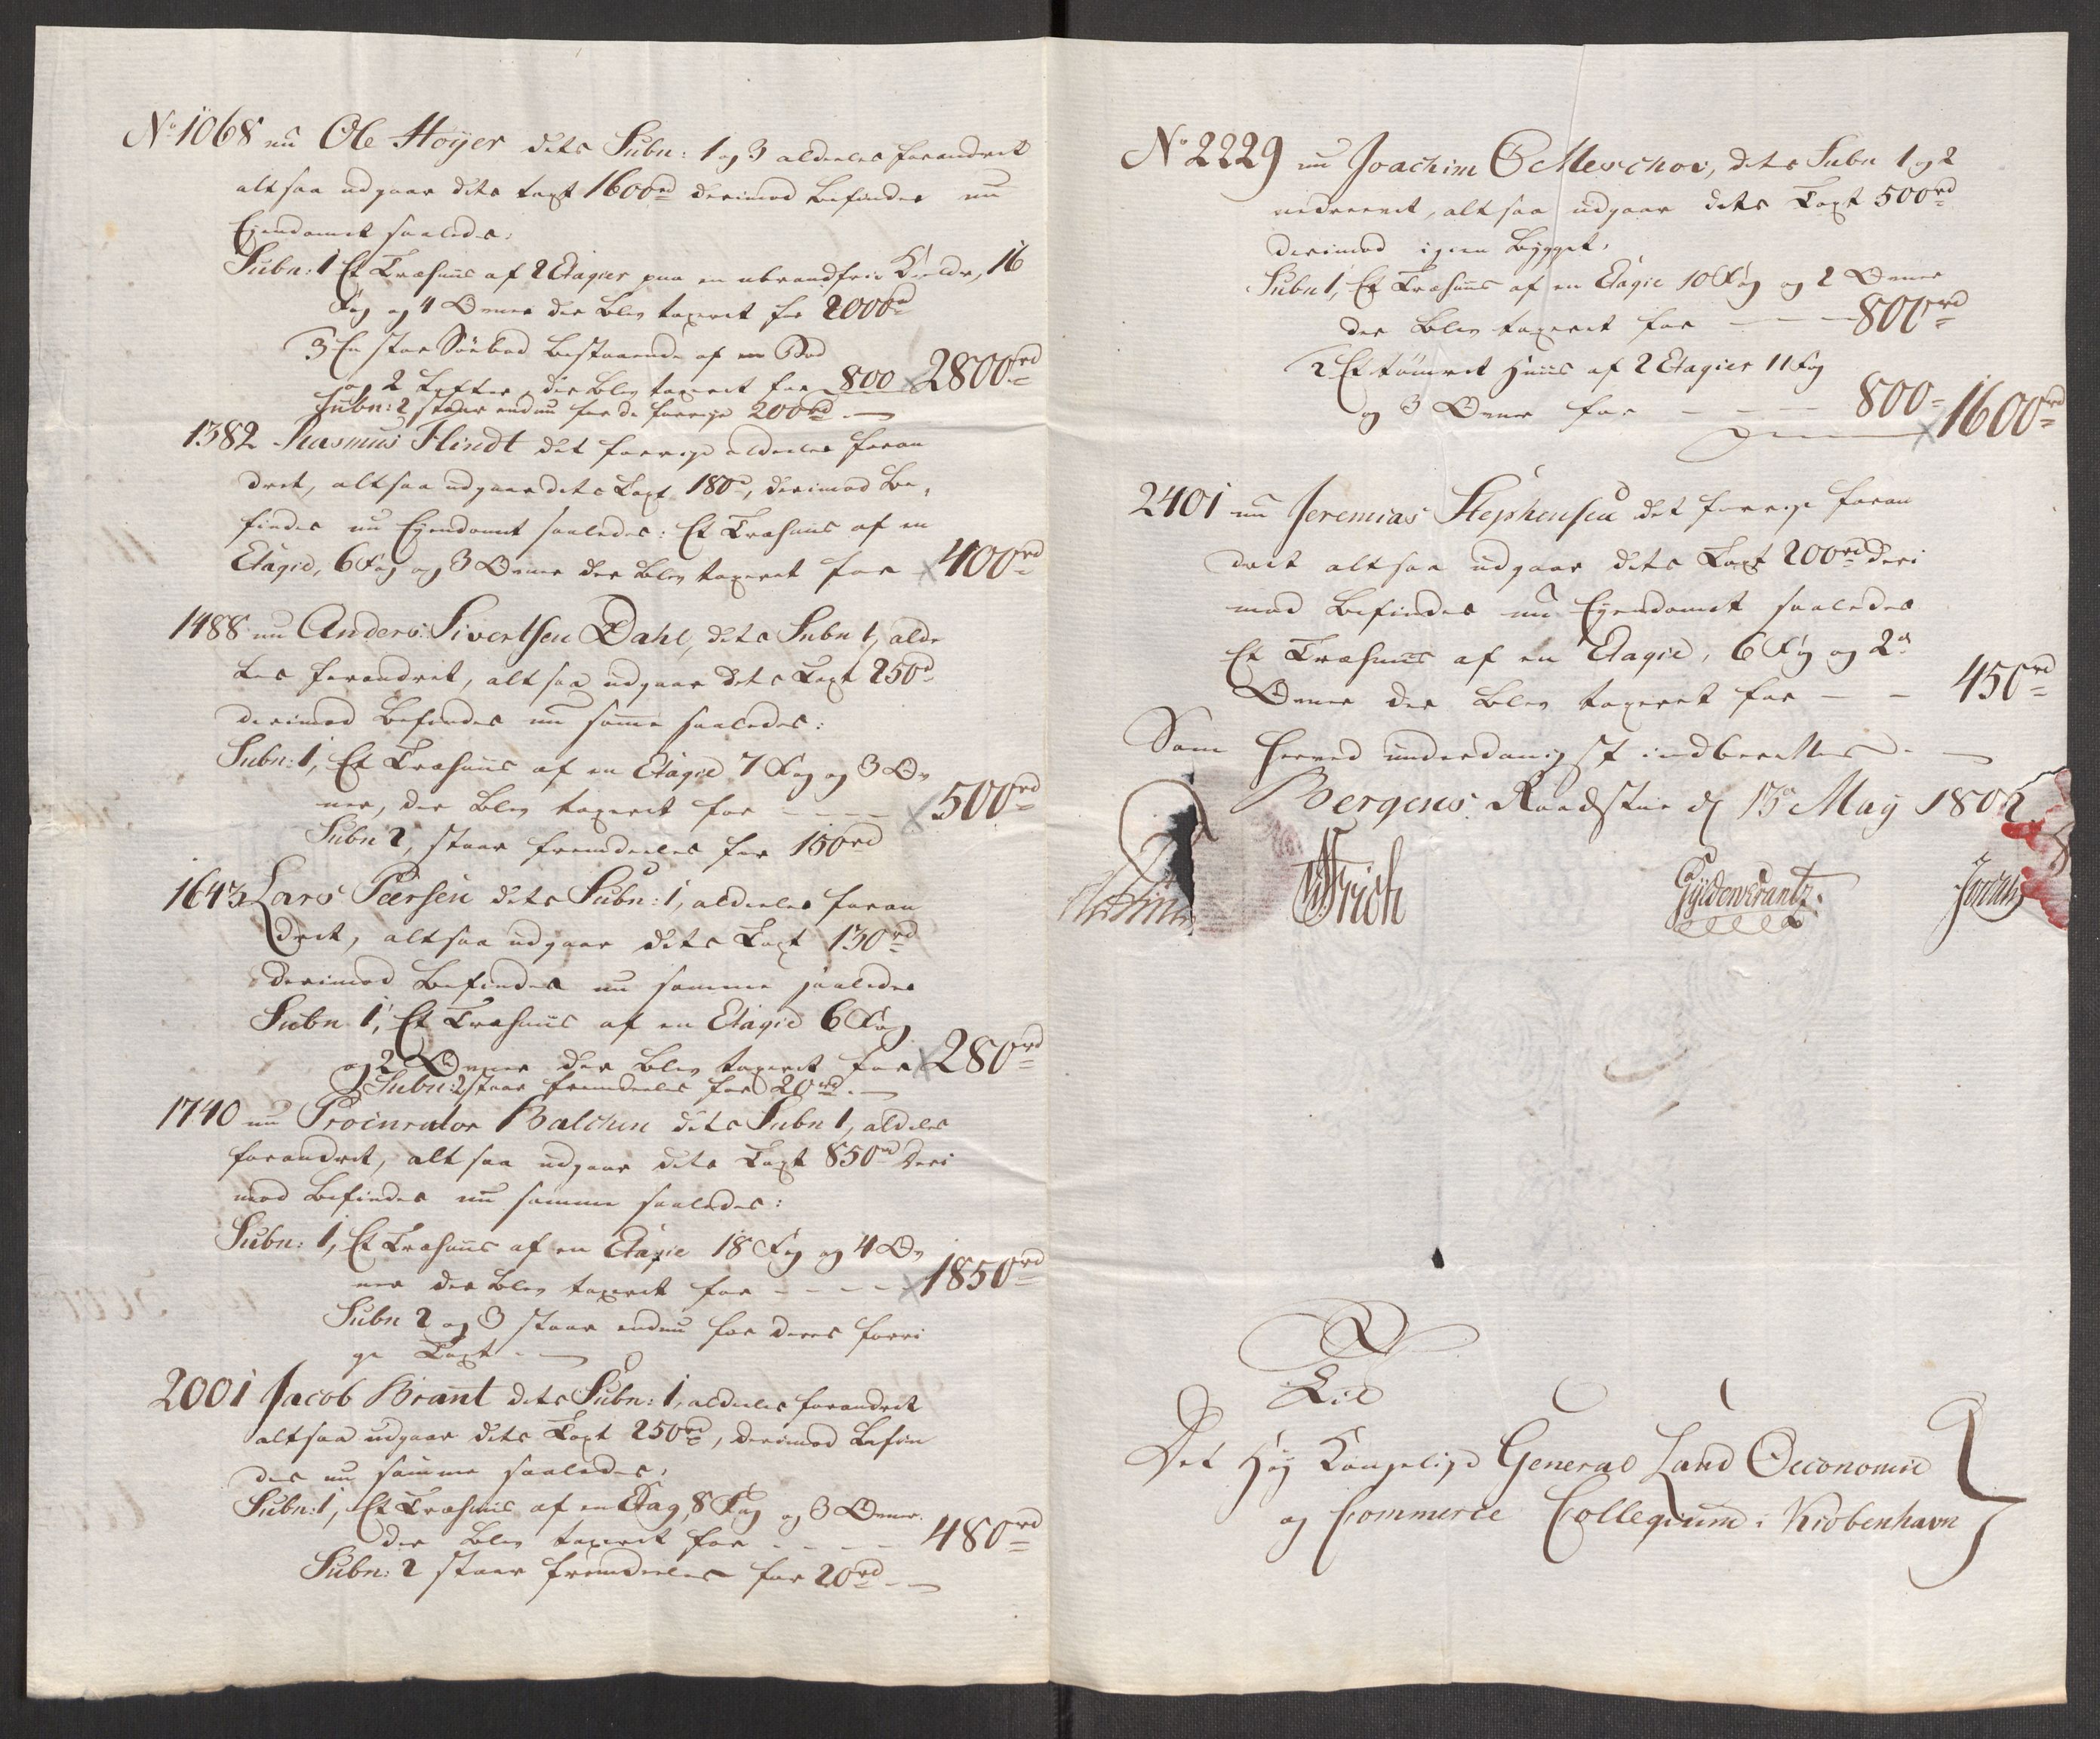 No 1068 nu Ole Høyer dets Subn: 1 og 3 aldeeles forandret
altsaa udgaar dets taxt 1600rd derimod befindes nu
Ejendomet saaledes:
Subn: 1 Et Træhuus af 2 Etagier paa en ubrandfrie Kielder, 16
Fag og 4 Ovner der blev taxeret for 2000rd
3 En stor Søebod bestaaende af en Bod
og 2 Lofter, der blev taxeret for 800 2800rd
Subn: 2 staar endnu for de forrige 200rd
1382 Rasmus Flindt det forrige aldeeles foran
dret, altsaa udgaar dets Taxt 180rd, derimod be,
findes nu Ejendomet saaledes: Et Træhuus af en
Etagie, 6 Fag og 3 Ovner der blev taxeret for 400rd
1488 nu Anders Sivertsen Dahl, dets Subn 1, alde
les forandret, altsaa udgaar dets Taxt 250rd
derimod befindes nu samme saaledes:
Subn: 1, Et Træhuus af en Etagie 7 Fag og 3 Ov
ner, der blev taxeret for - - - - 500rd
Subn 2, staar fremdeeles for 150rd
1643 Lars Peersen dets Subn: 1, aldeeles foran
dret, altsaa udgaar dets Taxt 130rd
derimod befindes nu samme saaledes
Subn 1, Et Træhuus af en Etagie 6 Fag
og 2 Ovner der blev taxeret for 280rd
Subn: 2 staar fremdeeles for 20rd
1740 nu Procurator Balchen dets Subn 1, aldeles
forandret, altsaa udgaar dets Taxt 850rd deri
mod befindes nu samme saaledes:
Subn: 1, Et Træhuus af en Etagie 18 Fag og 4 Ov
ner der blev taxeret for - - - - 1850rd
Subn 2 og 3 staar endnu for deres forri
ge Taxt
2001 Jacob Brant dets Subn: 1, aldeeles forandret
altsaa udgaar dets Taxt 250rd, derimod befin
des nu samme saaledes:
Subn: 1, Et Træhuus af en Etag, 8 Fag og 3 Ovner
der blev taxeret for - - - - 480rd
Subn: 2 staar fremdeeles for 20rd
No 2229 nu Joachim O Meschov, dets Subn 1 og 2
nedrevet, altsaa udgaar dets Taxt 500rd
derimod igien bygget.
Subn 1, Et Træhuus af en Etagie 10 Fag og 2 Ovner
der blev taxeret for - - - 800rd
2 Et tømret Huus af 2 Etagier 11 Fag
og 3 Ovner for - - - 800 1600rd
2401 nu Jeremias Stephensen det forrige foran
dret altsaa udgaar dets Taxt 200rd deri
mod befindes nu Ejendomet saaledes
Et Træhuus af en Etagie, 6 Fag og 2
Ovner der blev taxeret for - - 450rd
Som herved underdanigst indberettes.
Bergens Raadstue d 13 May 1802
Frich Gyldenkrantz
Til
Det Høy Kongelige General Land Oeconomie
og Commerce Collegium i Kiøbenhavn